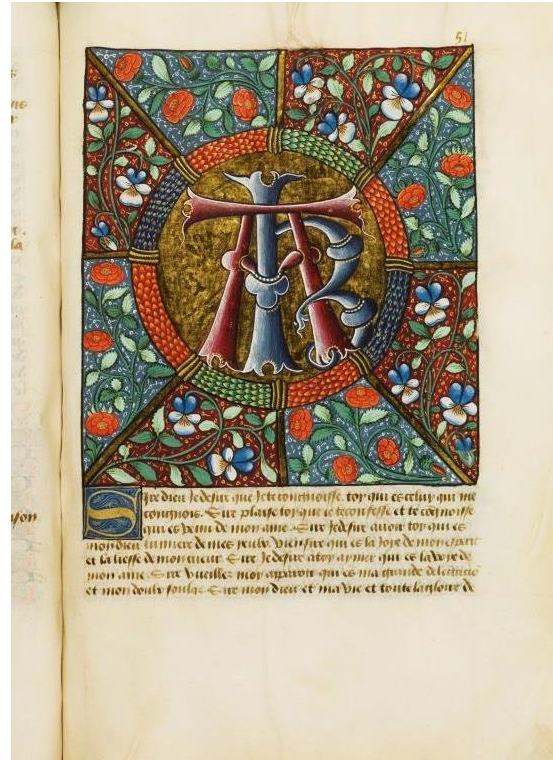 51
Sire dieu Je desire que Je te congnoisse. toy qui es celuy qui me
congnois. Sire plaise toy que Je te confesse et te congnoisse
qui es de mon ame. Sire Je desire auoir toy qui es
mon dieu lumiere de mes yeulx. vien sire qui es la Joye de mon esperit
et la liesse de mon cueur. Sire Je desire a toy aymer qui es la vie de
mon ame. Sire vueillez moy apparoir qui es ma grande delectacio
et mon doulx soulas. Sire mon dieu et ma vie et toute la gloire de